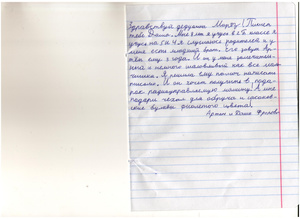 Здравствуй дедушка Мороз! Пишет
тебе Даша. Мне 8 лет я учусь в 2 Б классе я
учусь на 5 и 4 я слушаюсь родителей и у
меня есть младший брат. Его зовут Ар-
тём ему 3 года. И он у меня
и немного шаловливый как все маль-
чишки. Я решила ему помочь написать
письмо. И он хочет получить в пода-
рок радиоуправляемую машину! А мне
подари чехол для обруча и
булавы фиолетого цвета!
Артём и Даша